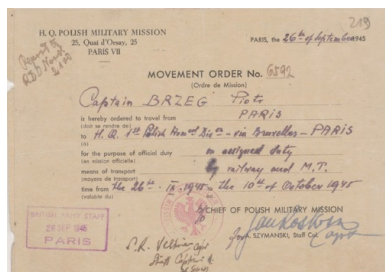 219
H. Q. POLISH MILITARY MISSION
25, Quai d'Orsay, 25
PARIS VII
PARIS, the 26th of September 1945
MOVEMENT ORDER No. 6592
(Ordre de Mission)
Captain BRZEG Piotr
is hereby ordered to travel from PARIS
(doit se rendre de)
to H.Q. 1st Polish Div - via Bruxelles - PARIS
(à)
for the purpose of official duty on assigned duty
(en mission officielle)
means of transport by railway and M.T.
(moyens de transport)
time from the 26th IX-1945 to the 10th of October 1945
(valable du)
CHIEF OF POLISH MILITARY MISSION
SZYMANSKI, Staff Col.
BRITISH ARMY STAFF
26 SEP 1945
PARIS
Staff Captain